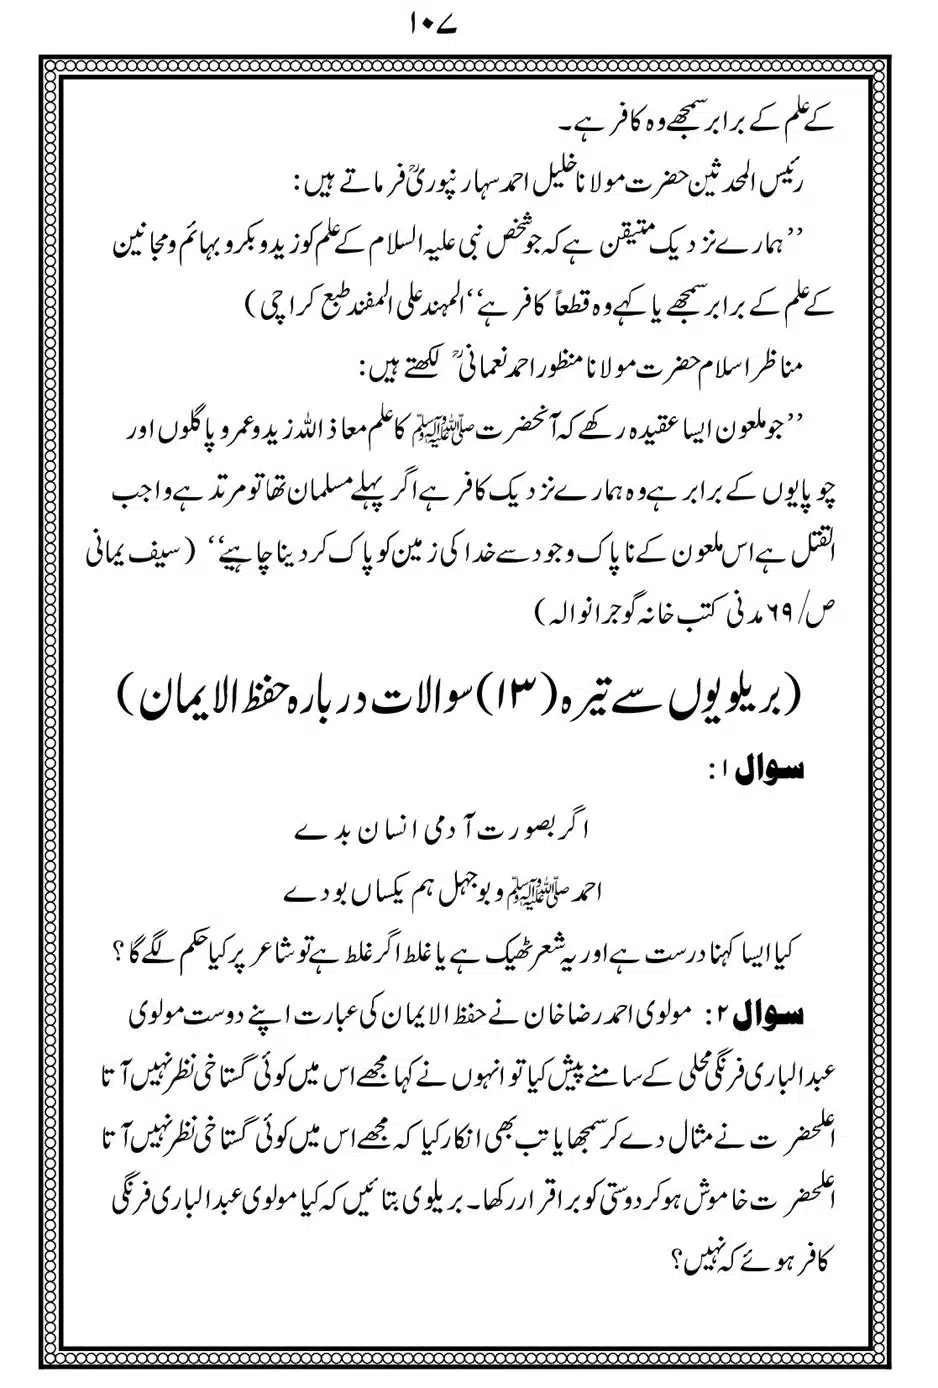 ۱۰۷
کے علم کے برابر سمجھے وہ کافر ہے۔
رئیس المحدثین حضرت مولانا خلیل احمد سہارنپوریؒ فرماتے ہیں:
’’ہمارے نزدیک متیقن ہے کہ جو شخص نبی علیہ السلام کے علم کو زید و بکر و بہائم و مجانین
کے علم کے برابر سمجھے یا کہے وہ قطعاً کافر ہے‘‘ المہند علی المفند طبع کراچی)
مناظر اسلام حضرت مولانا منظور احمد نعمانیؒ لکھتے ہیں:
’’جو ملعون ایسا عقیدہ رکھے کہ آنحضرت ﷺ کا علم معاذ اللہ زید و عمر و پاگلوں اور
چوپایوں کے برابر ہے وہ ہمارے نزدیک کافر ہے اگر پہلے مسلمان تھا تو مرتد ہے واجب
القتل ہے اس ملعون کے ناپاک وجود سے خدا کی زمین کو پاک کر دینا چاہیے‘‘ (سیف یمانی
ص/۶۹ مدنی کتب خانہ گوجرانوالہ)
(بریلویوں سے تیرہ (۱۳) سوالات دربارہ حفظ الایمان)
سوال ۱:
اگر بصورت آدمی انسان بدے
احمد ﷺ و بوجہل ہم یکساں بودے
کیا ایسا کہنا درست ہے اور یہ شعر ٹھیک ہے یا غلط اگر غلط ہے تو شاعر پر کیا حکم لگے گا؟
سوال ۲: مولوی احمد رضا خان نے حفظ الایمان کی عبارت اپنے دوست مولوی
عبدالباری فرنگی محلی کے سامنے پیش کیا تو انہوں نے کہا مجھے اس میں کوئی گستاخی نظر نہیں آتا
اعلحضرت نے مثال دے کر سمجھایا تب بھی انکار کیا کہ مجھے اس میں کوئی گستاخی نظر نہیں آتا
اعلحضرت خاموش ہو کر دوستی کو براقرار رکھا۔ بریلوی بتائیں کہ کیا مولوی عبدالباری فرنگی
کافر ہوئے کہ نہیں؟